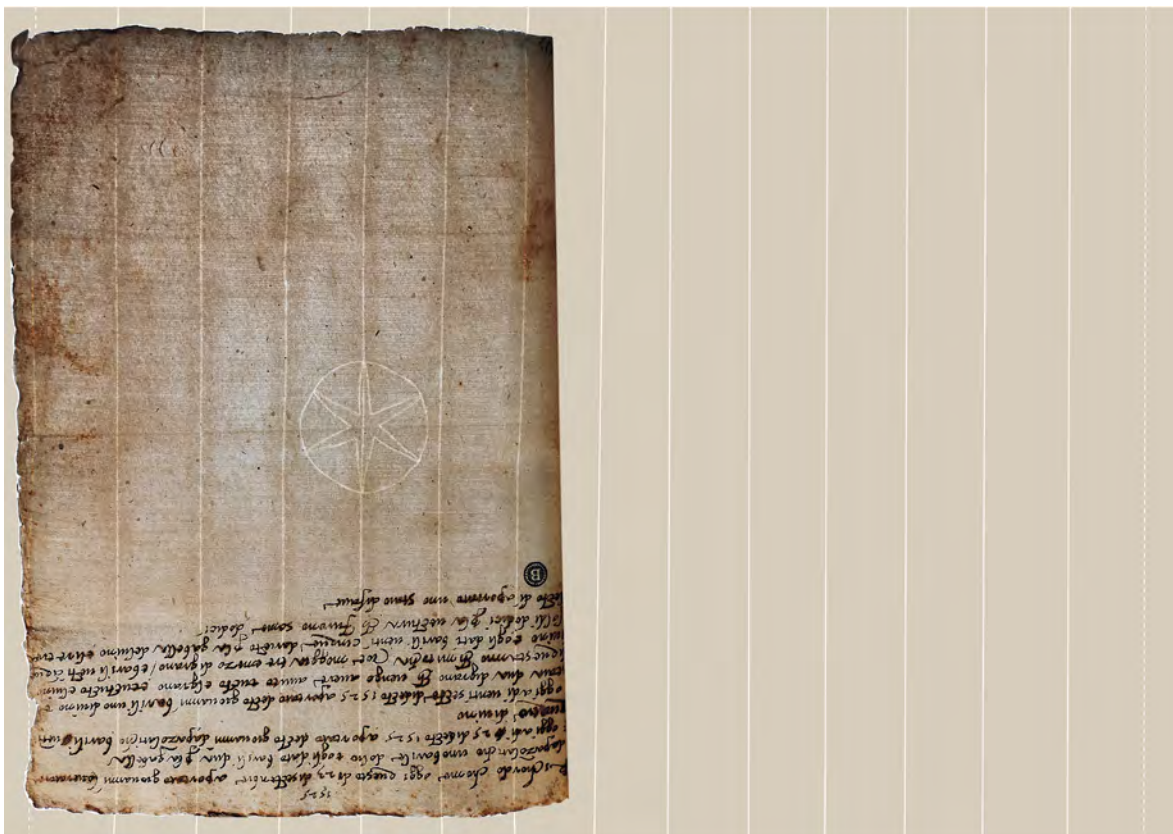 1525
Richordo chome oggi questo di 22 di settenbre a portato giovanni
dapazolaticho uno barile dolio e ogli dato barili dua p la gabella
e oggi a di 25 di detto 1525 a portato detto giovanni dapazolaticho barili
di vino
e oggi a di venti sette di detto 1525 a portato detto giovanni barili uno di vino e
dua di grano e vengo avere auto tutto el grano e tutto el vino
questo anno cioe moggia tre e mezo di grano / e barili venti
vino e ogli dati barili venti cinque p la gabella del vino e lire tre
soldi dodici p la vettura che furono some dodici
detto di a portato uno staio di fave
B